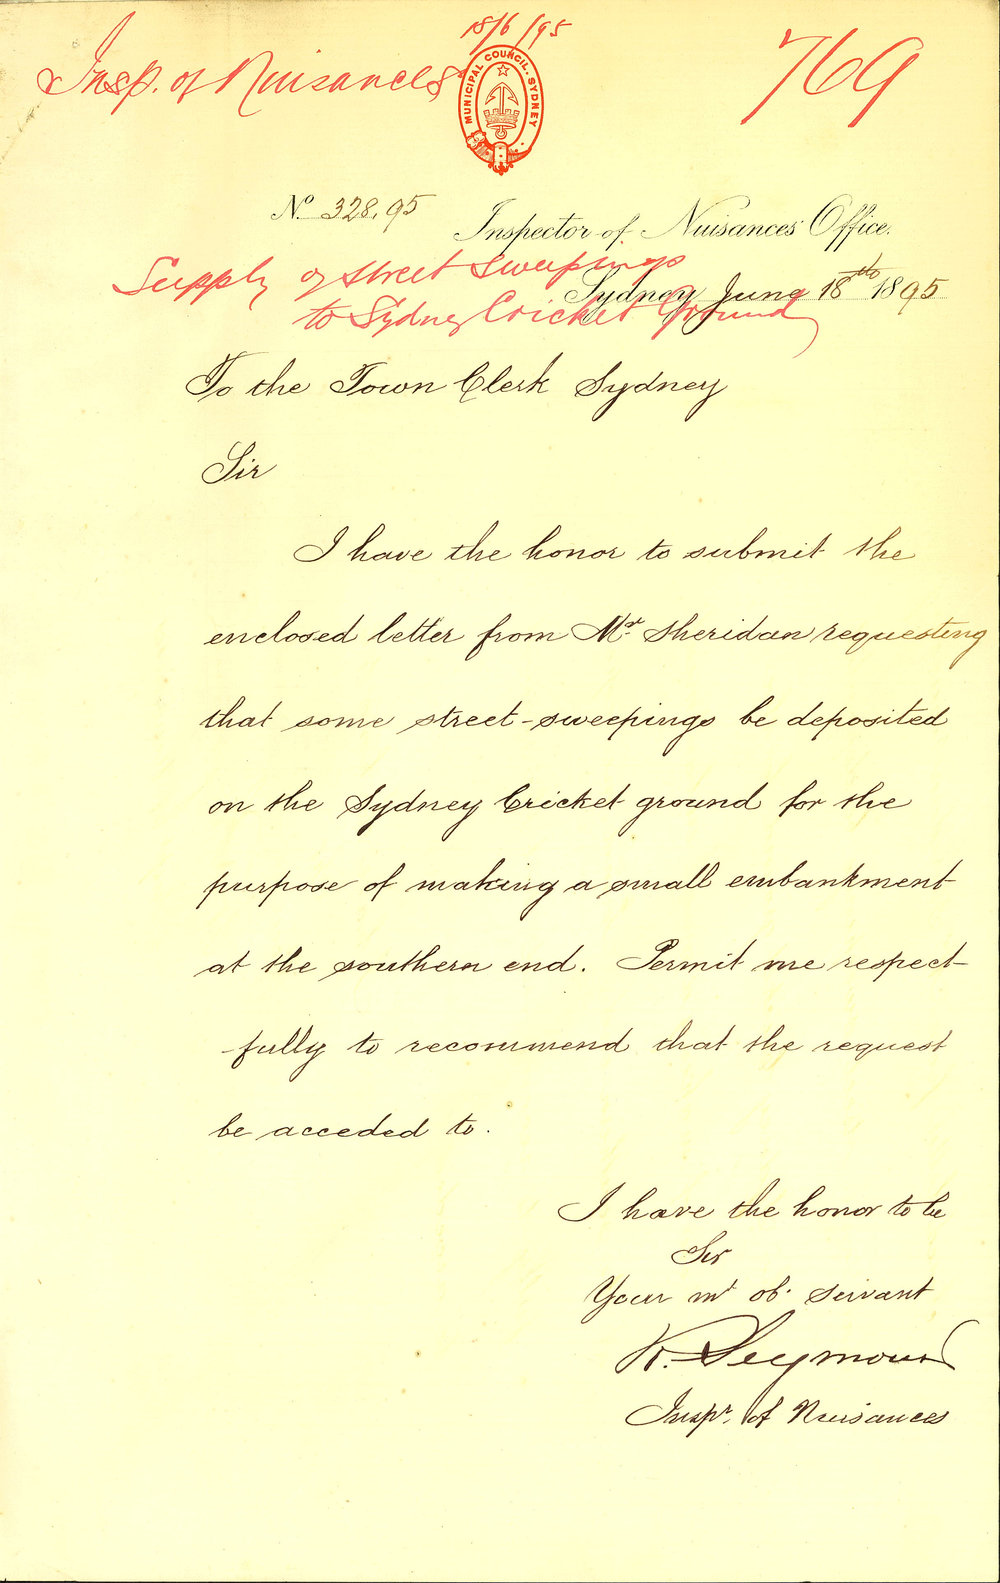 18/6/95
Insp. of Nuisances
769
MUNICIPAL COUNCIL. SYDNEY
No. 328.95
Inspector of Nuisances Office.
Supply of Street Sweepings
Sydney June 18th 1895
to Sydney Cricket Ground
To the Town Clerk Sydney
Sir
I have the honor to submit the
enclosed letter from Mr. Sheridan requesting
that some street-sweepings be deposited
on the Sydney Cricket ground for the
purpose of making a small embankment
at the southern end. Permit me respect-
-fully to recommend that the request
be acceded to.
I have the honor to be
Sir
Your mt ob. servant
R. Seymour
Inspr. of Nuisances